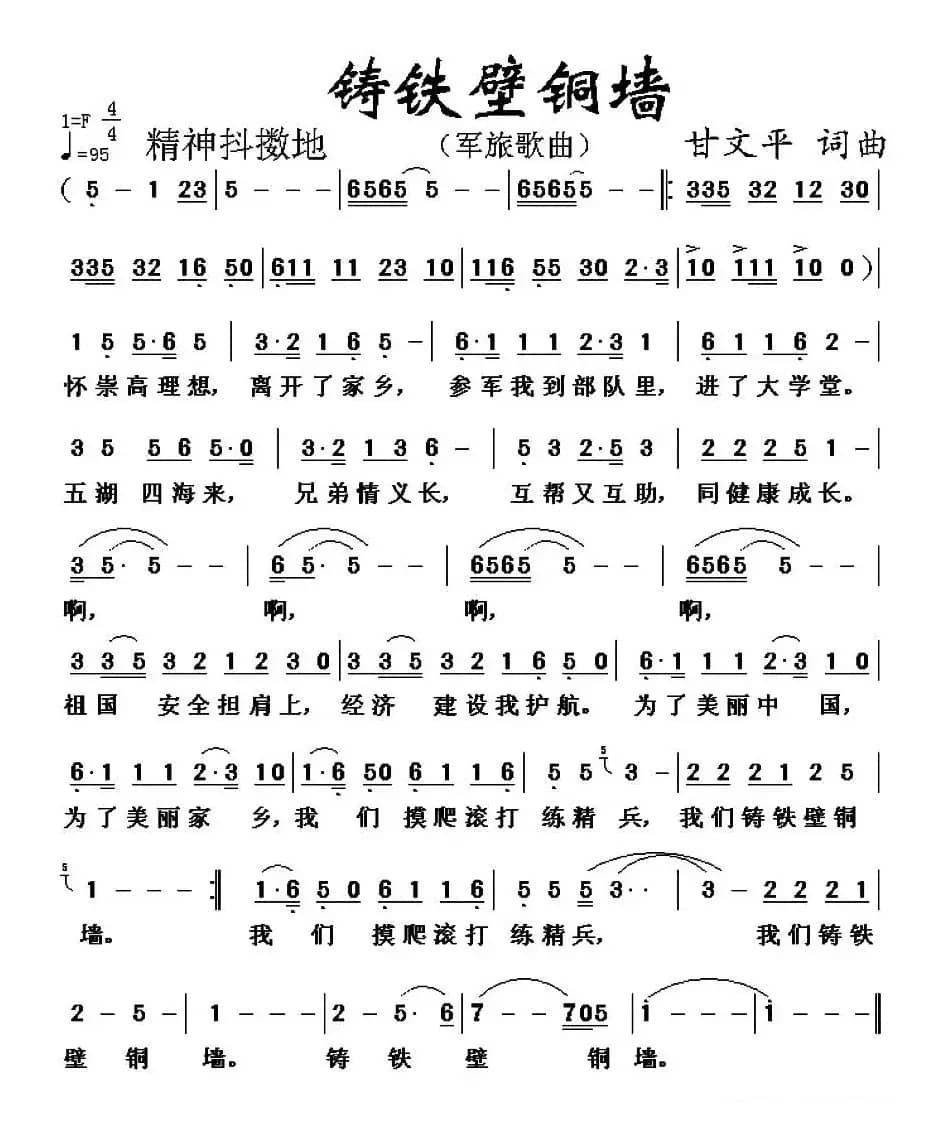 铸铁壁铜墙
1=F 4/4
♩=95 精神抖擞地 （军旅歌曲） 甘文平 词曲
( 5 - 1 23 | 5 - - - | 6565 5 - - | 65655 - - |: 335 32 12 30 |
335 32 16 50 | 611 11 23 10 | 116 55 30 2·3 | 10 111 10 0 ) |
1 5 5·6 5 | 3·2 1 6 5 - | 6·1 1 1 2·3 1 | 6 1 1 6 2 - |
怀崇高理想， 离开了家乡， 参军我到部队里， 进了大学堂。
3 5 5 6 5·0 | 3·2 1 3 6 - | 5 3 2·5 3 | 2 2 2 5 1 - |
五湖 四海来， 兄弟情义长， 互帮又互助， 同健康成长。
3 5· 5 - - | 6 5· 5 - - | 6565 5 - - | 6565 5 - - |
啊， 啊， 啊， 啊，
3 3 5 3 2 1 2 3 0 | 3 3 5 3 2 1 6 5 0 | 6·1 1 1 2·3 1 0 |
祖国 安全担肩上， 经济 建设我护航。 为了美丽中 国，
6·1 1 1 2·3 10 | 1·6 50 6 1 1 6 | 5 5 5 3 - | 2 2 2 1 2 5 |
为了美丽家 乡， 我 们 摸爬滚打 练精 兵， 我们铸铁壁铜
5 1 - - - :| 1·6 5 0 6 1 1 6 | 5 5 5 3·· | 3 - 2 2 2 1 |
墙。 我 们 摸爬滚打 练精兵， 我们铸铁
2 - 5 - | 1 - - - | 2 - 5· 6 | 7 - - 705 | i - - - | i - - - ‖
壁 铜 墙。 铸 铁 壁 铜 墙。